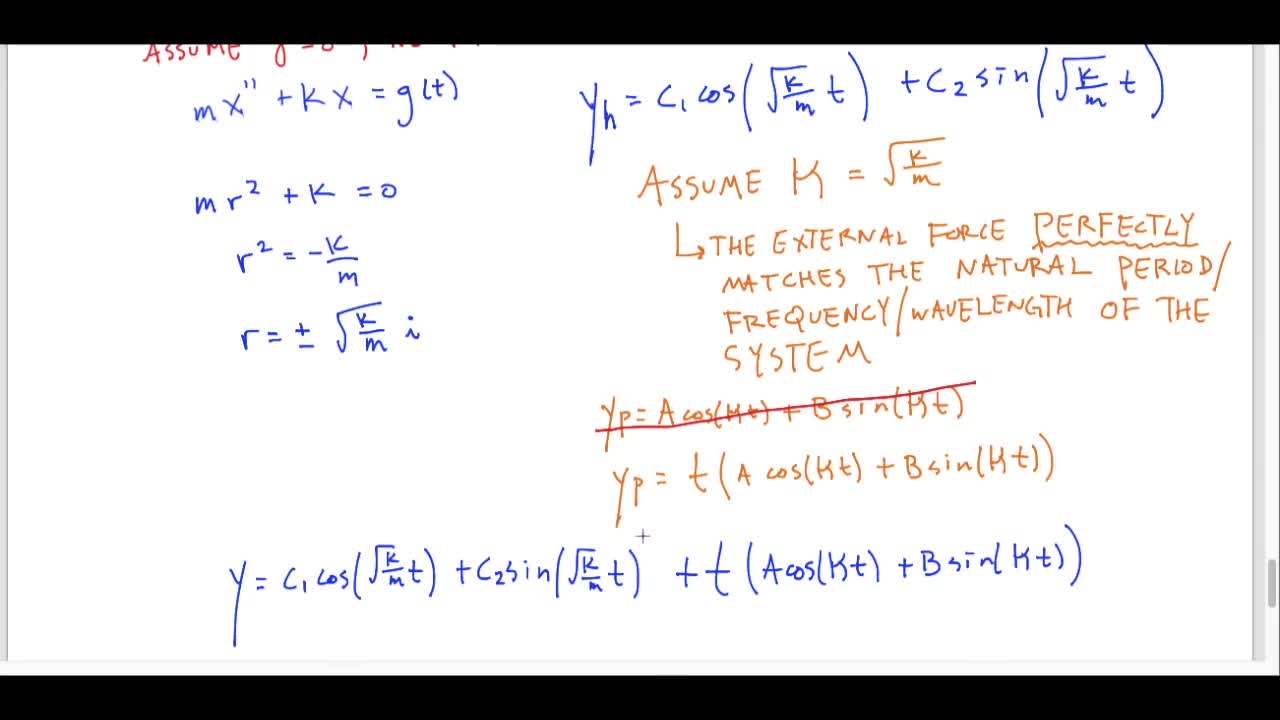 ASSUME
mx" + kx = g(t)
mr² + k = 0
r² = -k/m
r = ± √(k/m) i
y_h = C₁ cos(√(k/m) t) + C₂ sin(√(k/m) t)
ASSUME K = √(k/m)
↳ THE EXTERNAL FORCE PERFECTLY
MATCHES THE NATURAL PERIOD/
FREQUENCY/WAVELENGTH OF THE
SYSTEM
yp = A cos(Kt) + B sin(Kt)
yp = t(A cos(Kt) + B sin(Kt))
y = C₁ cos(√(k/m) t) + C₂ sin(√(k/m) t) + t(A cos(Kt) + B sin(Kt))